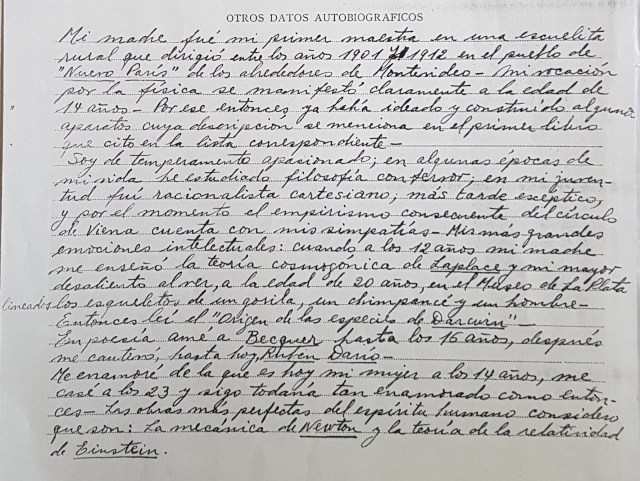 OTROS DATOS AUTOBIOGRAFICOS
Mi madre fué mi primer maestra en una escuelita
rural que dirigió entre los años 1901 y 1912 en el pueblo de
"Nuevo París" de los alrededores de Montevideo - Mi vocación
por la física se manifestó claramente a la edad de
14 años - Por ese entonces ya había ideado y construído algunos
aparatos cuya descripción se menciona en el primer libro
que cito en la lista correspondiente -
Soy de temperamento apasionado; en algunas épocas de
mi vida he estudiado filosofía con fervor; en mi juven-
tud fuí racionalista cartesiano; más tarde escéptico,
y por el momento el empirismo consecuente del círculo
de Viena cuenta con mis simpatías - Mis más grandes
emociones intelectuales: cuando a los 12 años mi madre
me enseñó la teoría cosmogónica de Laplace y mi mayor
desaliento al ver, a la edad de 20 años, en el Museo de La Plata
lineados los esqueletos de un gorila, un chimpancé y un hombre -
Entonces leí el "Origen de las especies de Darwin" -
En poesía amé a Becquer hasta los 16 años, después
me cautivó, hasta hoy, Rubén Darío -
Me enamoré de la que es hoy mi mujer a los 14 años, me
casé a los 23 y sigo todavía tan enamorado como enton-
ces - Las obras más perfectas del espíritu humano considero
que son: La mecánica de Newton y la teoría de la relatividad
de Einstein.